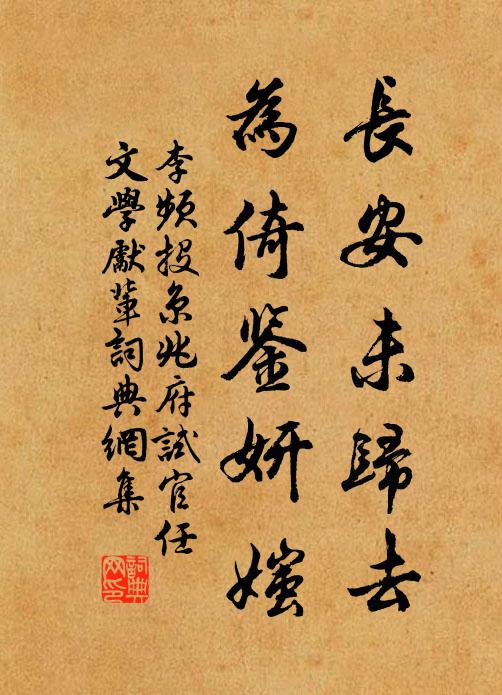 長安未歸去
為倚鉴妍媸
李頻投京兆府試官任
文學獻輩詞典網集
詞典网印